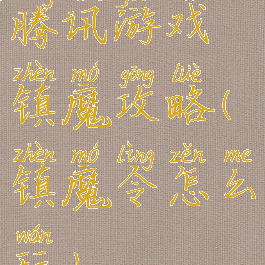 腾讯游戏
zhèn mó gōng lüè
镇魔攻略(
zhèn mó lìng zěn me
镇魔令怎么
wán
玩)